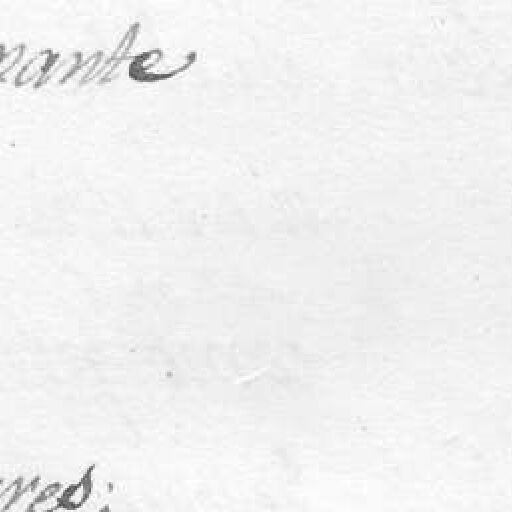 nante
res;